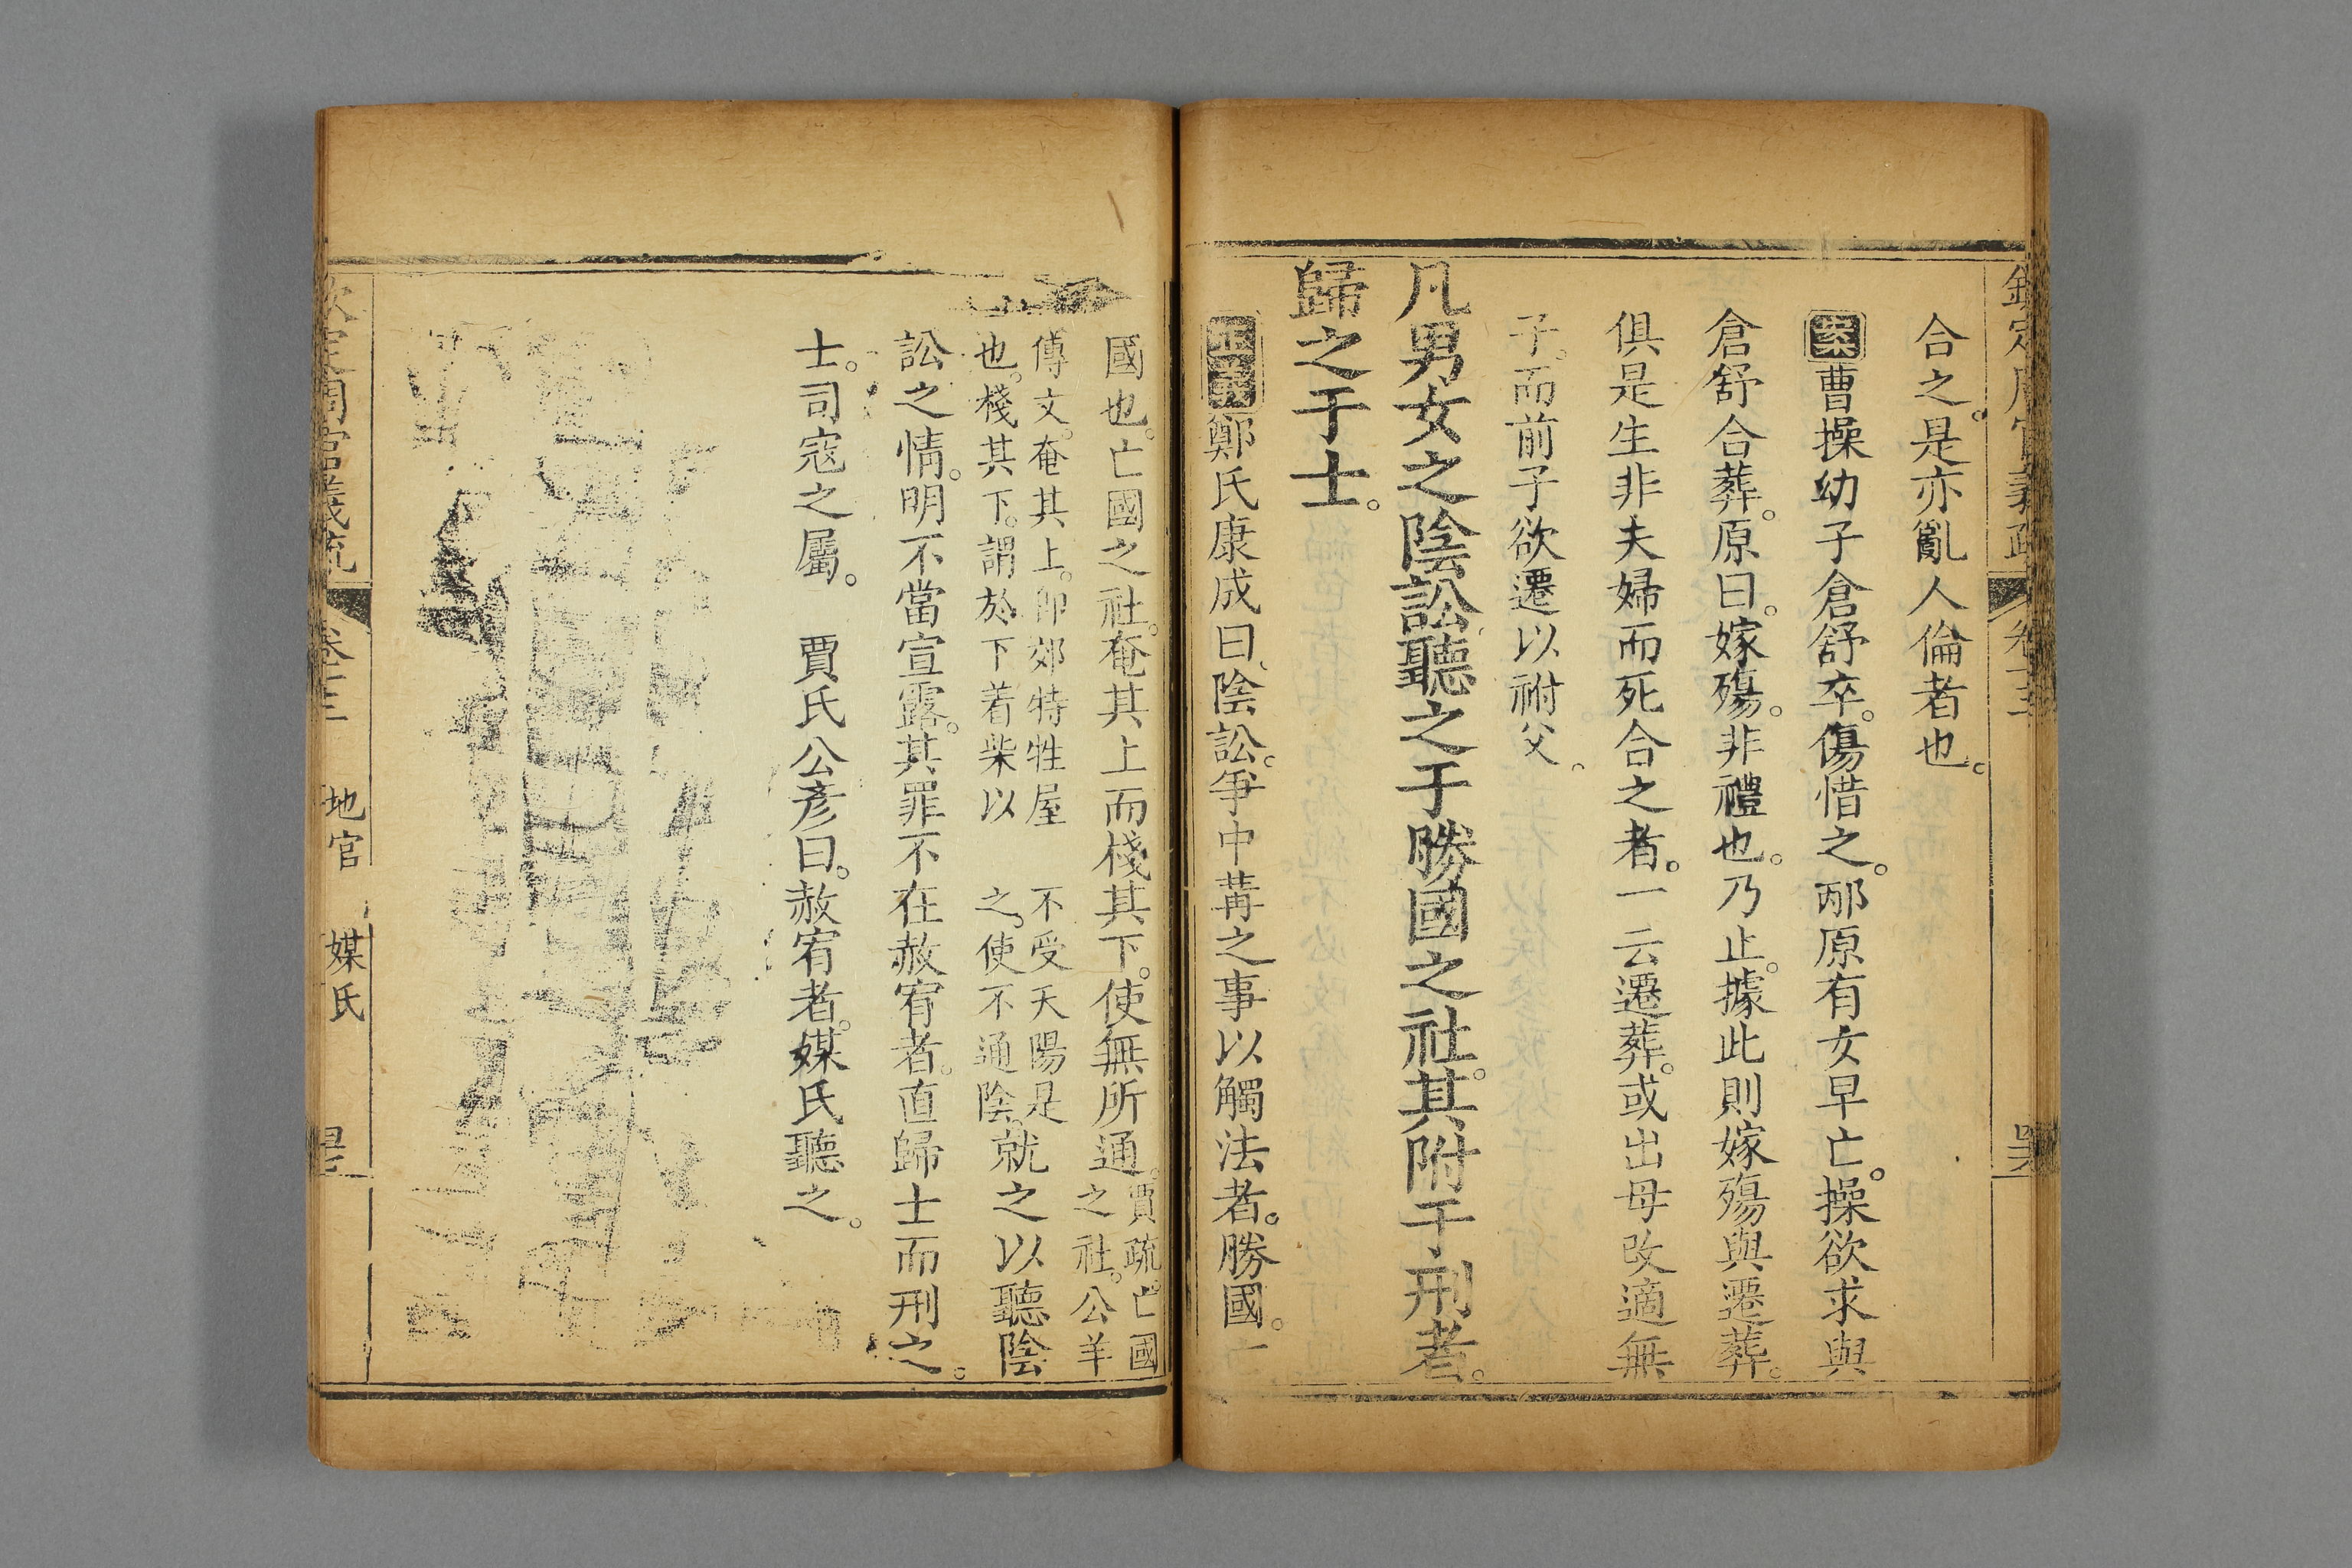 合之。是亦亂人倫者也。
案曹操幼子倉舒卒。傷惜之。邴原有女早亡。操欲求與
倉舒合葬。原曰。嫁殤。非禮也。乃止。據此則嫁殤與遷葬。
俱是生非夫婦而死合之者。一云遷葬。或出母改適無
子。而前子欲遷以祔父。
凡男女之陰訟聽之于勝國之社。其附于刑者。
歸之于士。
正義鄭氏康成曰。陰訟。爭中冓之事以觸法者。勝國。
國也。亡國之社。奄其上而棧其下。使無所通。賈疏。亡國
之社。公羊
傳文。奄其上。卽郊特牲屋 不受天陽是
也。棧其下。謂於下着柴以 之。使不通陰。就之以聽陰
訟之情。明不當宣露。其罪不在赦宥者。直歸士而刑之。
士。司寇之屬。 賈氏公彥曰。赦宥者。媒氏聽之。
欽定周官義疏 卷十三 地官 媒氏